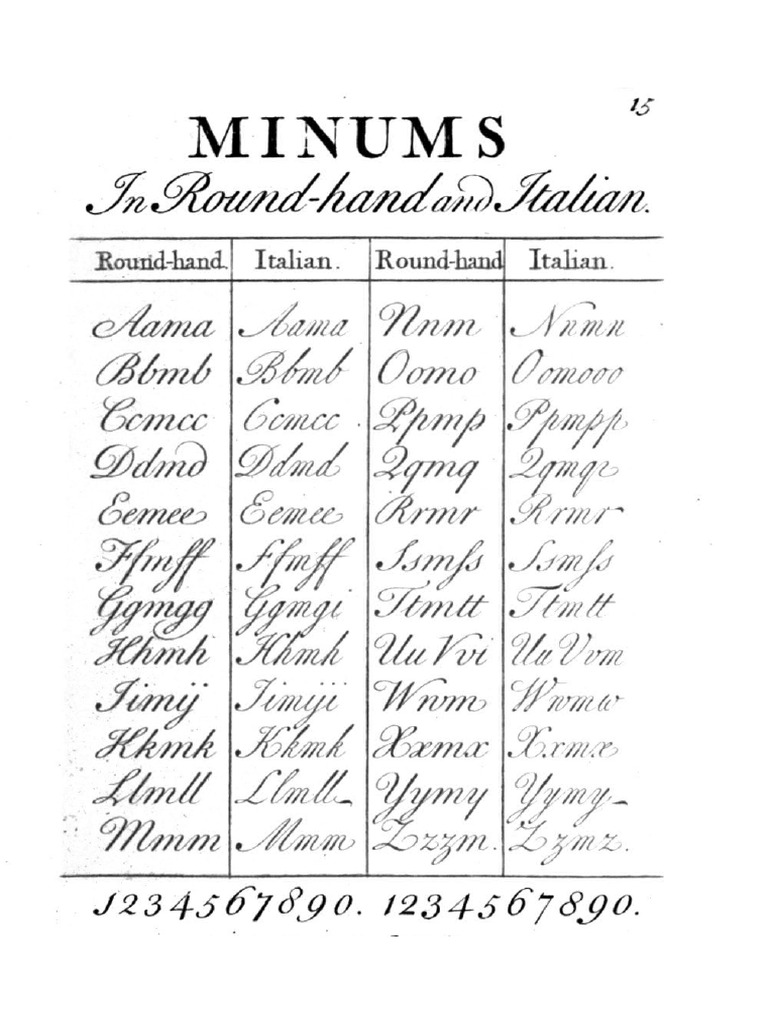 15
MINUMS
In Round-hand and Italian.
Round-hand. Italian. Round-hand Italian.
Aama Aama Nnm Nnmn
Bbmb Bbmb Oomo Oomooo
Ccmcc Ccmcc Ppmp Ppmpp
Ddmd Ddmd Qqmq Qqmqr
Eemee Eemee Rrmr Rrmr
Ffmff Ffmff Ssmſs Ssmſs
Ggmgg Ggmgi Ttmtt Ttmtt
Hhmh Hhmh Uu Vvi Uu Vvm
Iimij Iimiji Wwm Wwmw
Kkmk Kkmk Xxmx Xxmx
Llmll Llmll Yymy Yymy
Mmm Mmm Zzzm. Zzmz.
1234567890. 1234567890.